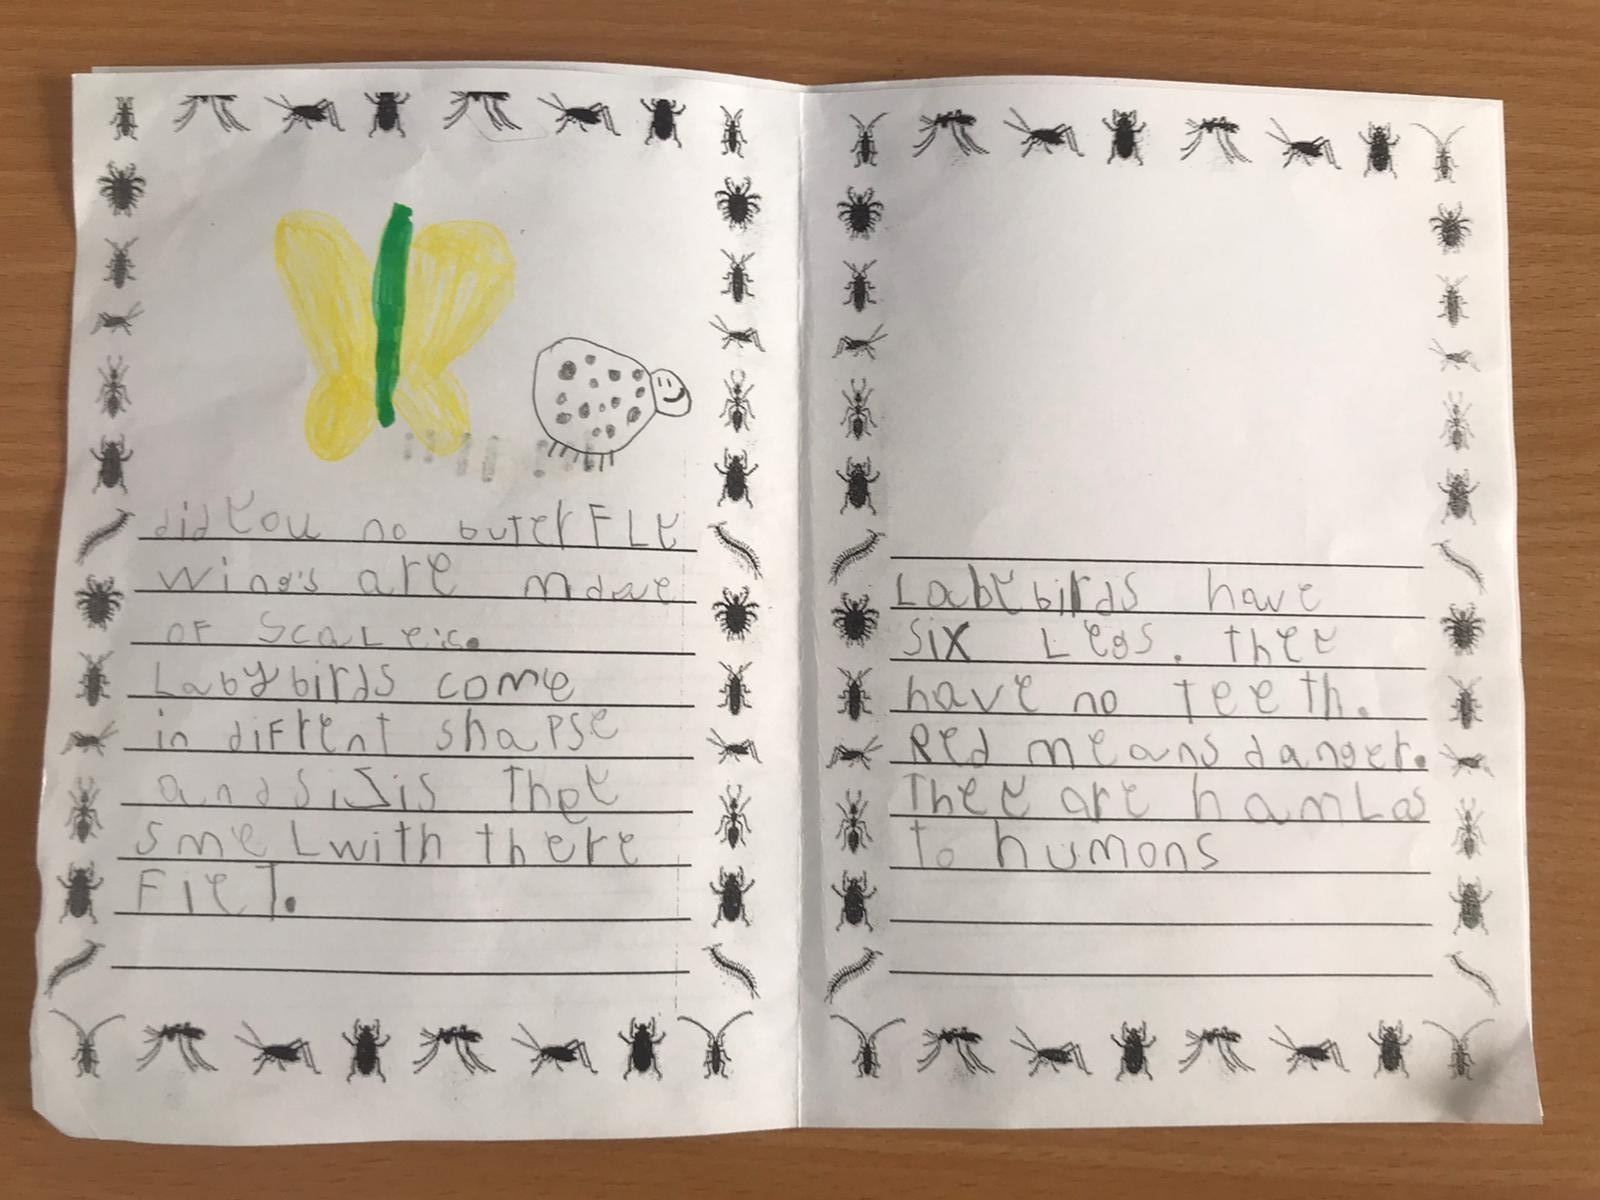 did you no buterFLy
wings are mdae
of Scaleis.
Ladybirds come
in difrent shapse
and siZis They
smeL with there
FieT.
Ladybirds have
six Legs. they
have no teeth.
Red means danger.
They are hamLas
to humons